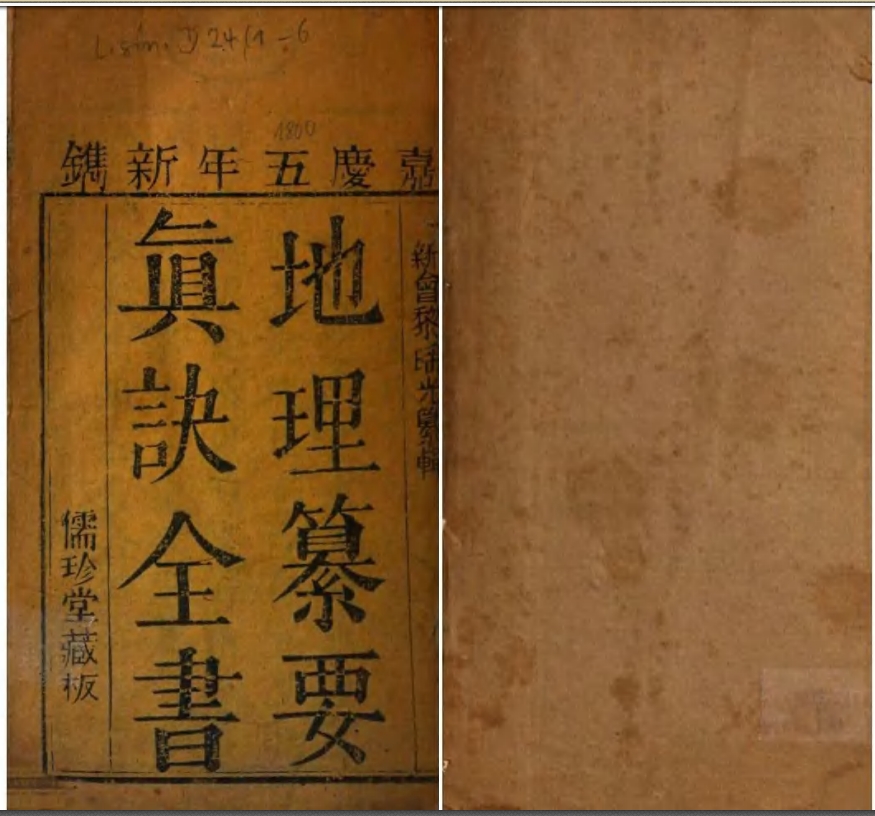 L.sin. D 24(1-6
1800
嘉慶五年新鐫
新會黎光纂輯
地理纂要
眞訣全書
儒珍堂藏板